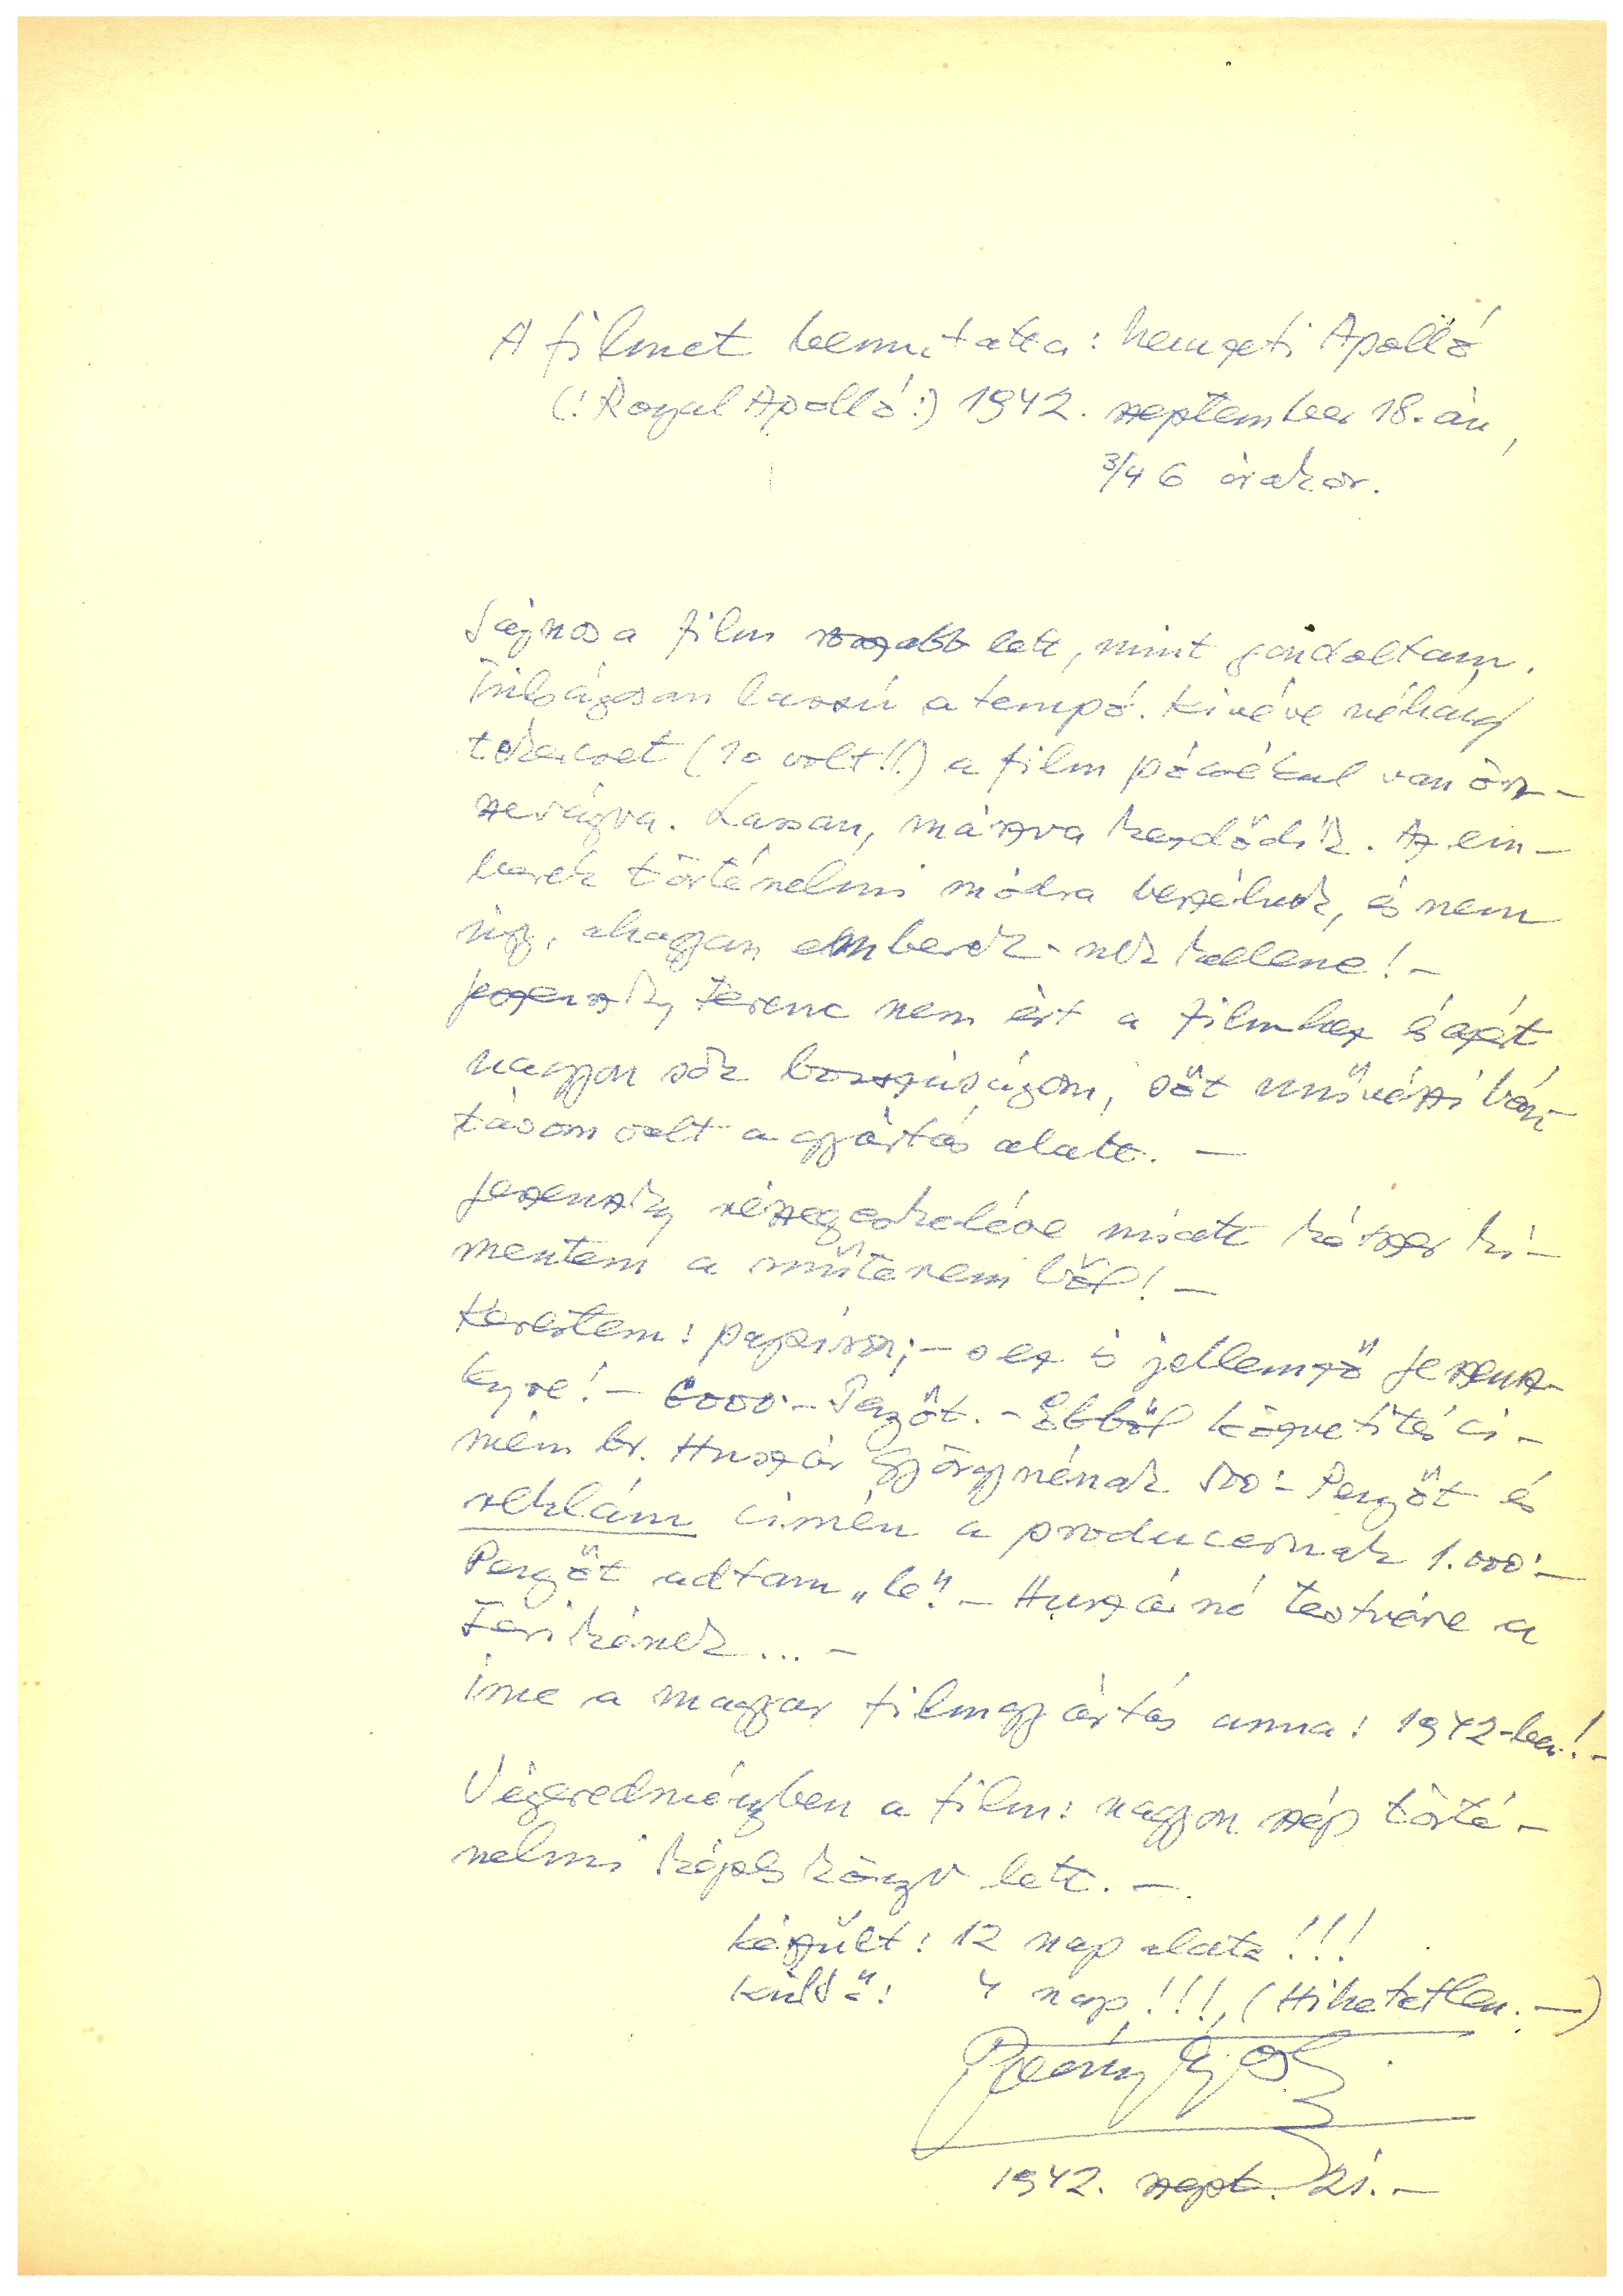 A filmet bemutatta: Nemzeti Apolló
(: Royal Apolló :) 1942. szeptember 18.-án,
3/4 6 órakor.
Sajnos a film rosszabb lett, mint gondoltam.
Túlságosan lassú a tempó. Kivéve néhány
tekercset (10 volt!!) a film pocsékul van ösz-
szevágva. Lassan, mászva kezdődik. Az em-
berek történelmi módra beszélnek, és nem
úgy, ahogyan emberek-nek kellene! –
Jeszenszky Ferenc nem ért a filmhez és azért
nagyon sok bosszúságom, sőt művészi bán-
tásom volt a gyártás alatt. –
Jeszenszky részegeskedése miatt kétszer ki-
mentem a műteremből! –
Kerestem: papíron; – s ez is jellemző Jeszensz-
kyre! – 6000.– Pengőt. – Ebből közvetítés cí-
mén br. Huszár Györgynének 500.– Pengőt és
reklám címén a producernek 1.000.–
Pengőt adtam „le". – Huszárné testvére a
Ferikének... –
Íme a magyar filmgyártás anna! 1942-ben! –
Végeredményben a film: nagyon szép törté-
nelmi képeskönyv lett. –
Készült: 12 nap alatt!!!
Külső: 4 nap!!! (Hihetetlen. –)
1942. szept. 21. –